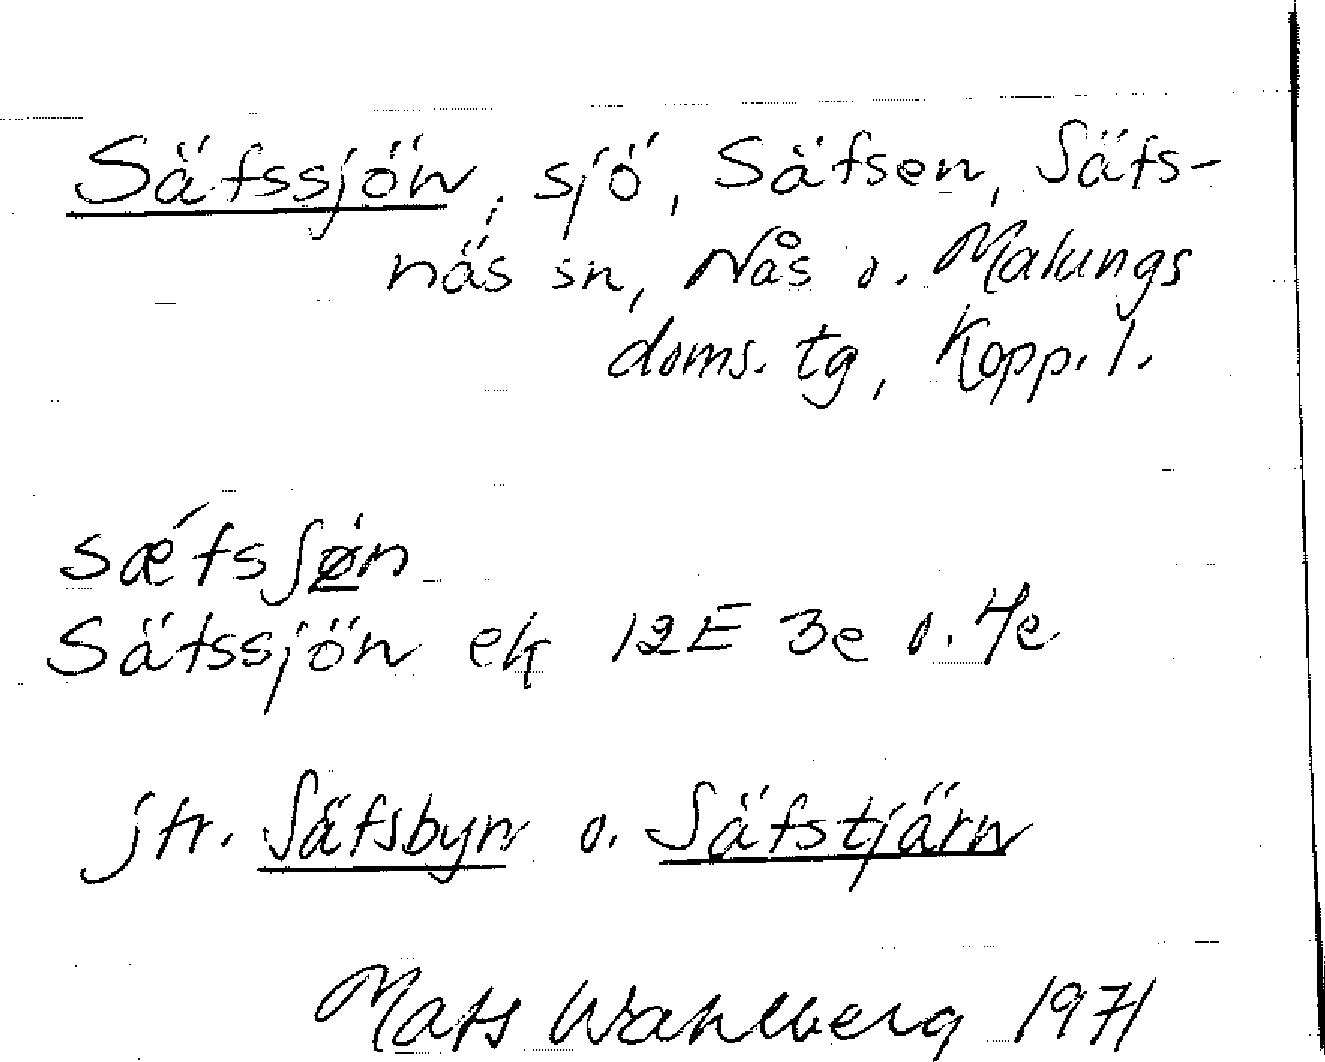 Säfssjön, sjö, Säfsen, Säfs-
näs sn, Nås o. Malungs
doms. tg, Kopp. l.
sǽfsʃøn
Säfssjön ek 12E 3e o. 4e
jfr. Säfsbyn o. Säfstjärn
Mats Wahlberg 1971